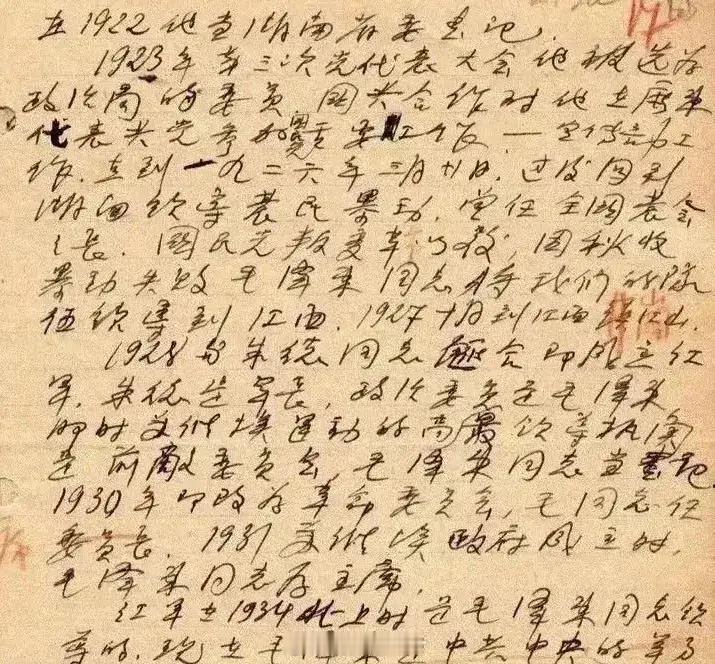 在1922他当湖南省委书记,
1923年第三次党代表大会他被选为
政治局的委员 国共合作时他在广东
代表共党参加 工作, 一宣传部工
作, 直到一九二六年三月廿日, 过后回到
湖南领导农民暴动, 曾任全国农会
之长, 国民党叛变革命后, 因秋收
暴动失败毛泽东同志将我们的队
伍领导到江西, 1927十月到江西
1928与朱德同志 会即成立红
军, 朱德是军长, 政治委员是毛泽东,
那时苏维埃运动的高最领导机关
是前敌委员会, 毛泽东同志当书记,
1930年即改为革命委员会, 毛同志任
委员长, 1931苏维埃政府成立时,
毛泽东同志为主席,
红军在1934北上时是毛泽东同志领
导的, 现在毛泽东是中共中央的